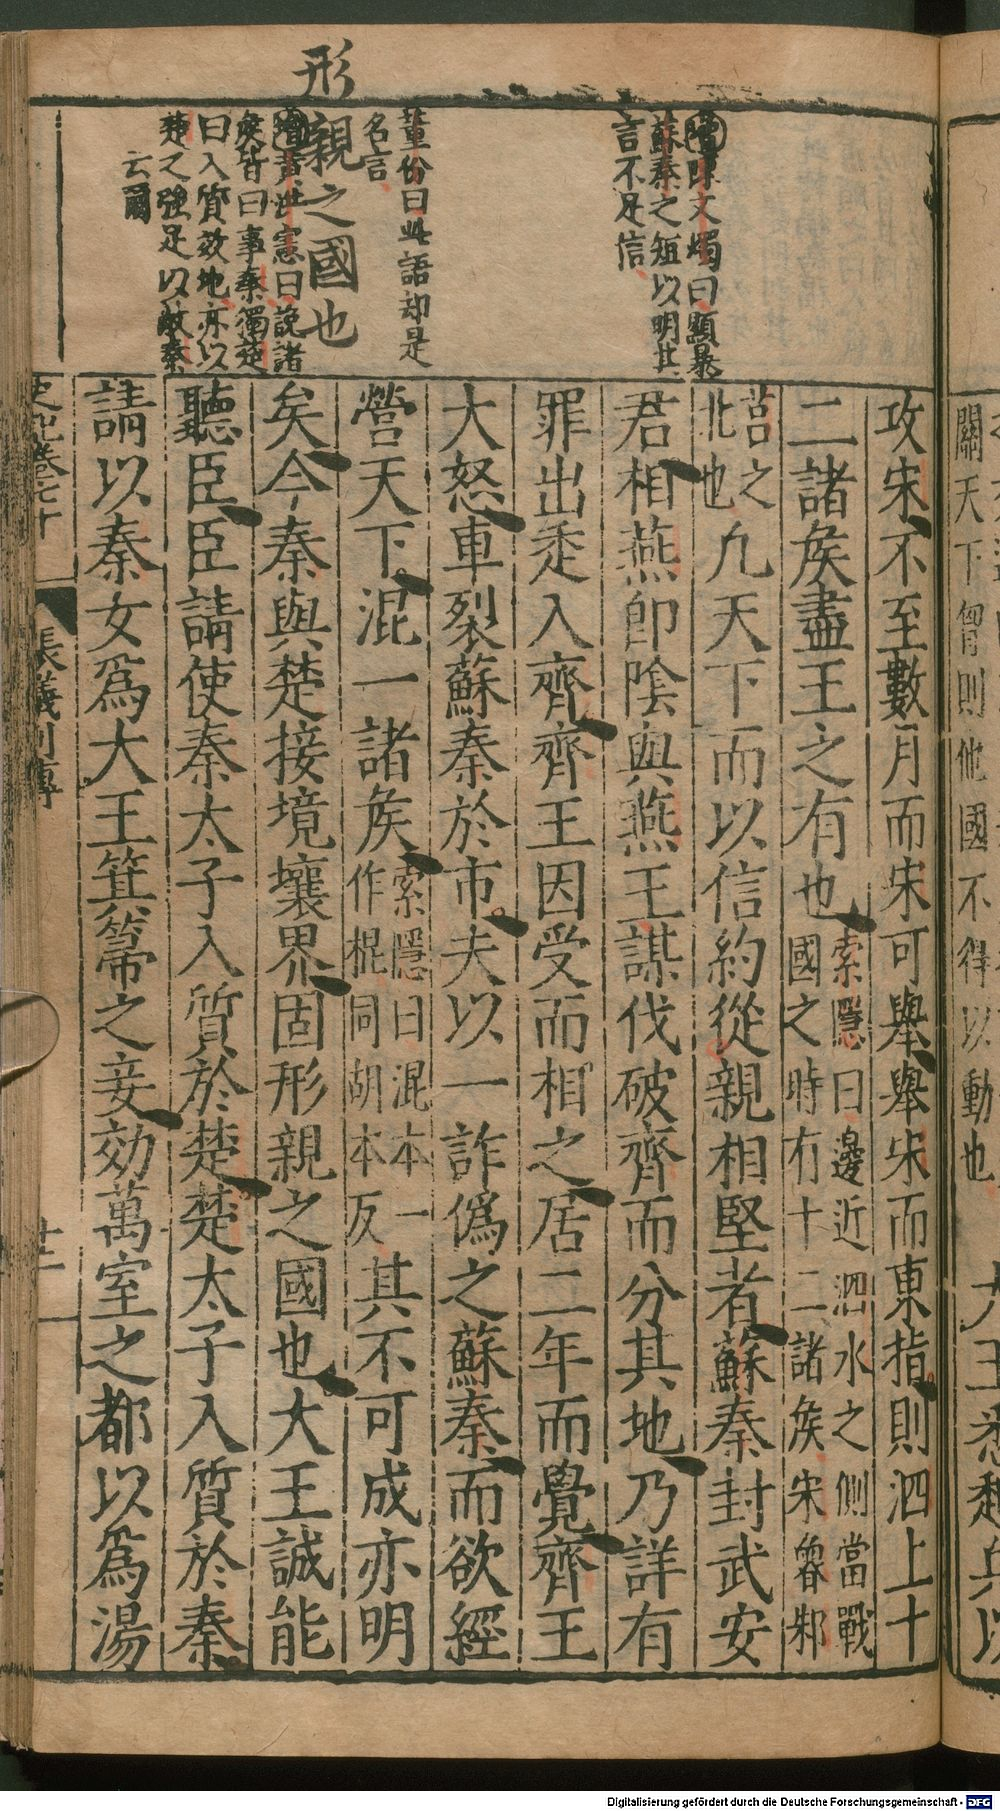 形
親之國也
增陳文燭曰顯暴
蘇秦之短以明其
言不足信
董份曰此語却是
名言
增黃洪憲曰說諸
矦皆曰事秦獨楚
曰入質效地亦以
楚之強足以敵秦
云爾
關天下匈則他國不得以動也
大王悉起兵以
攻宋不至數月而宋可舉舉宋而東指則泗上十
二諸矦盡王之有也
索隱曰邊近泗水之側當戰
國之時有十二諸矦宋魯邾
莒之
北也
凢天下而以信約從親相堅者蘇秦封武安
君相燕卽陰與燕王謀伐破齊而分其地乃詳有
罪出走入齊齊王因受而相之居二年而覺齊王
大怒車裂蘇秦於市夫以一詐僞之蘇秦而欲經
營天下混一諸矦
索隱曰混本一
作棍同胡本反
其不可成亦明
矣今秦與楚接境壤界固形親之國也大王誠能
聽臣臣請使秦太子入質於楚楚太子入質於秦
請以秦女爲大王箕箒之妾効萬室之都以爲湯
史記卷七十
張儀列傳
十二
Digitalisierung gefördert durch die Deutsche Forschungsgemeinschaft - DFG